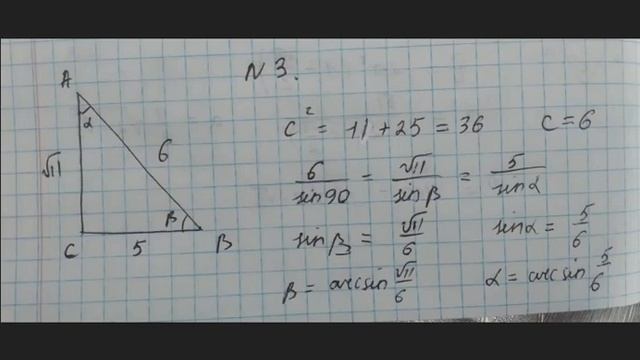 N 3.
A
α
√11
6
β
C
5
B
c² = 11 + 25 = 36 c = 6
6/sin90 = √11/sinβ = 5/sinα
sinβ = √11/6 sinα = 5/6
β = arcsin √11/6 α = arcsin 5/6